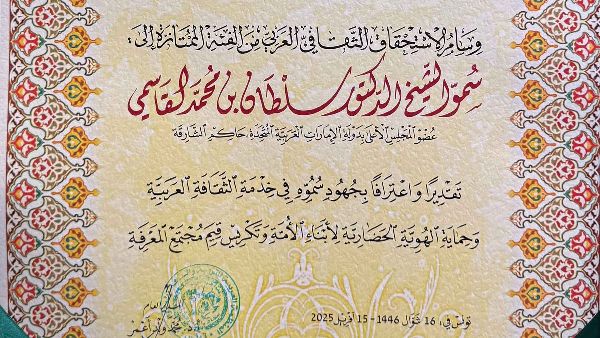 وسام الاستحقاق الثقافي العربي من الفئة الممتازة إلى
سمو الشيخ الدكتور سلطان بن محمد القاسمي
عضو المجلس الأعلى بدولة الإمارات العربية المتحدة حاكم الشارقة
تقديرا واعترافا بجهود سموه في خدمة الثقافة العربية
وحماية الهوية الحضارية لأبناء الأمة وتكريس قيم مجتمع المعرفة
تونس في، 16 شوال 1446 - 15 أفريل 2025
أ.د. محمد ولد أعمر